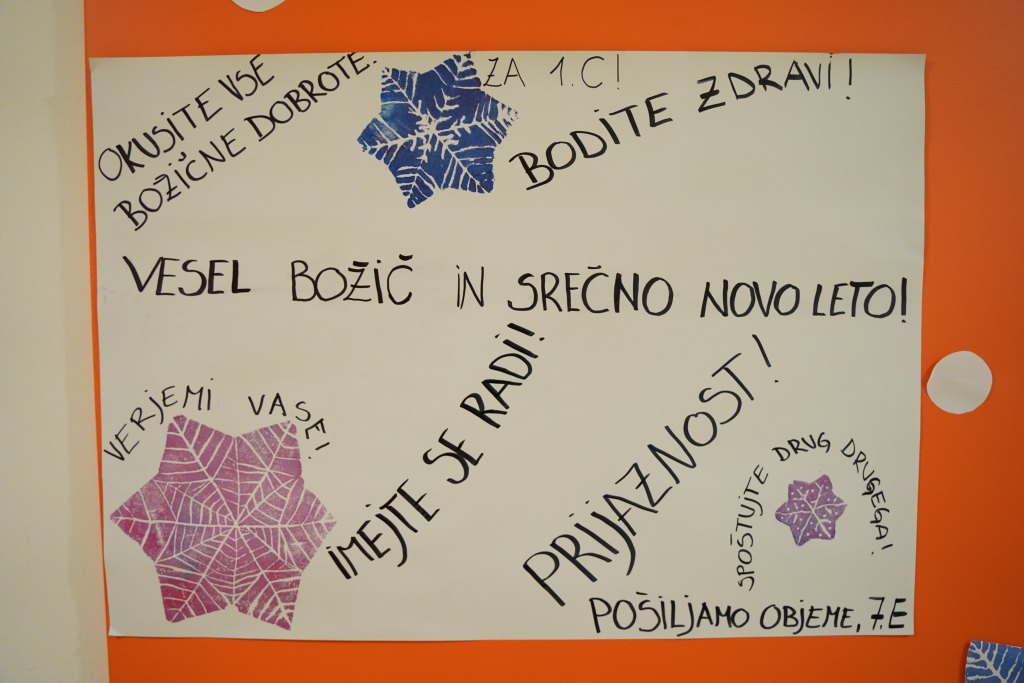 OKUSITE VSE
BOŽIČNE DOBROTE.
ZA 1.C!
BODITE ZDRAVI!
VESEL BOŽIČ IN SREČNO NOVO LETO!
VERJEMI VASE!
IMEJTE SE RADI!
PRIJAZNOST!
SPOŠTUJTE DRUG DRUGEGA!
POŠILJAMO OBJEME, 7.E